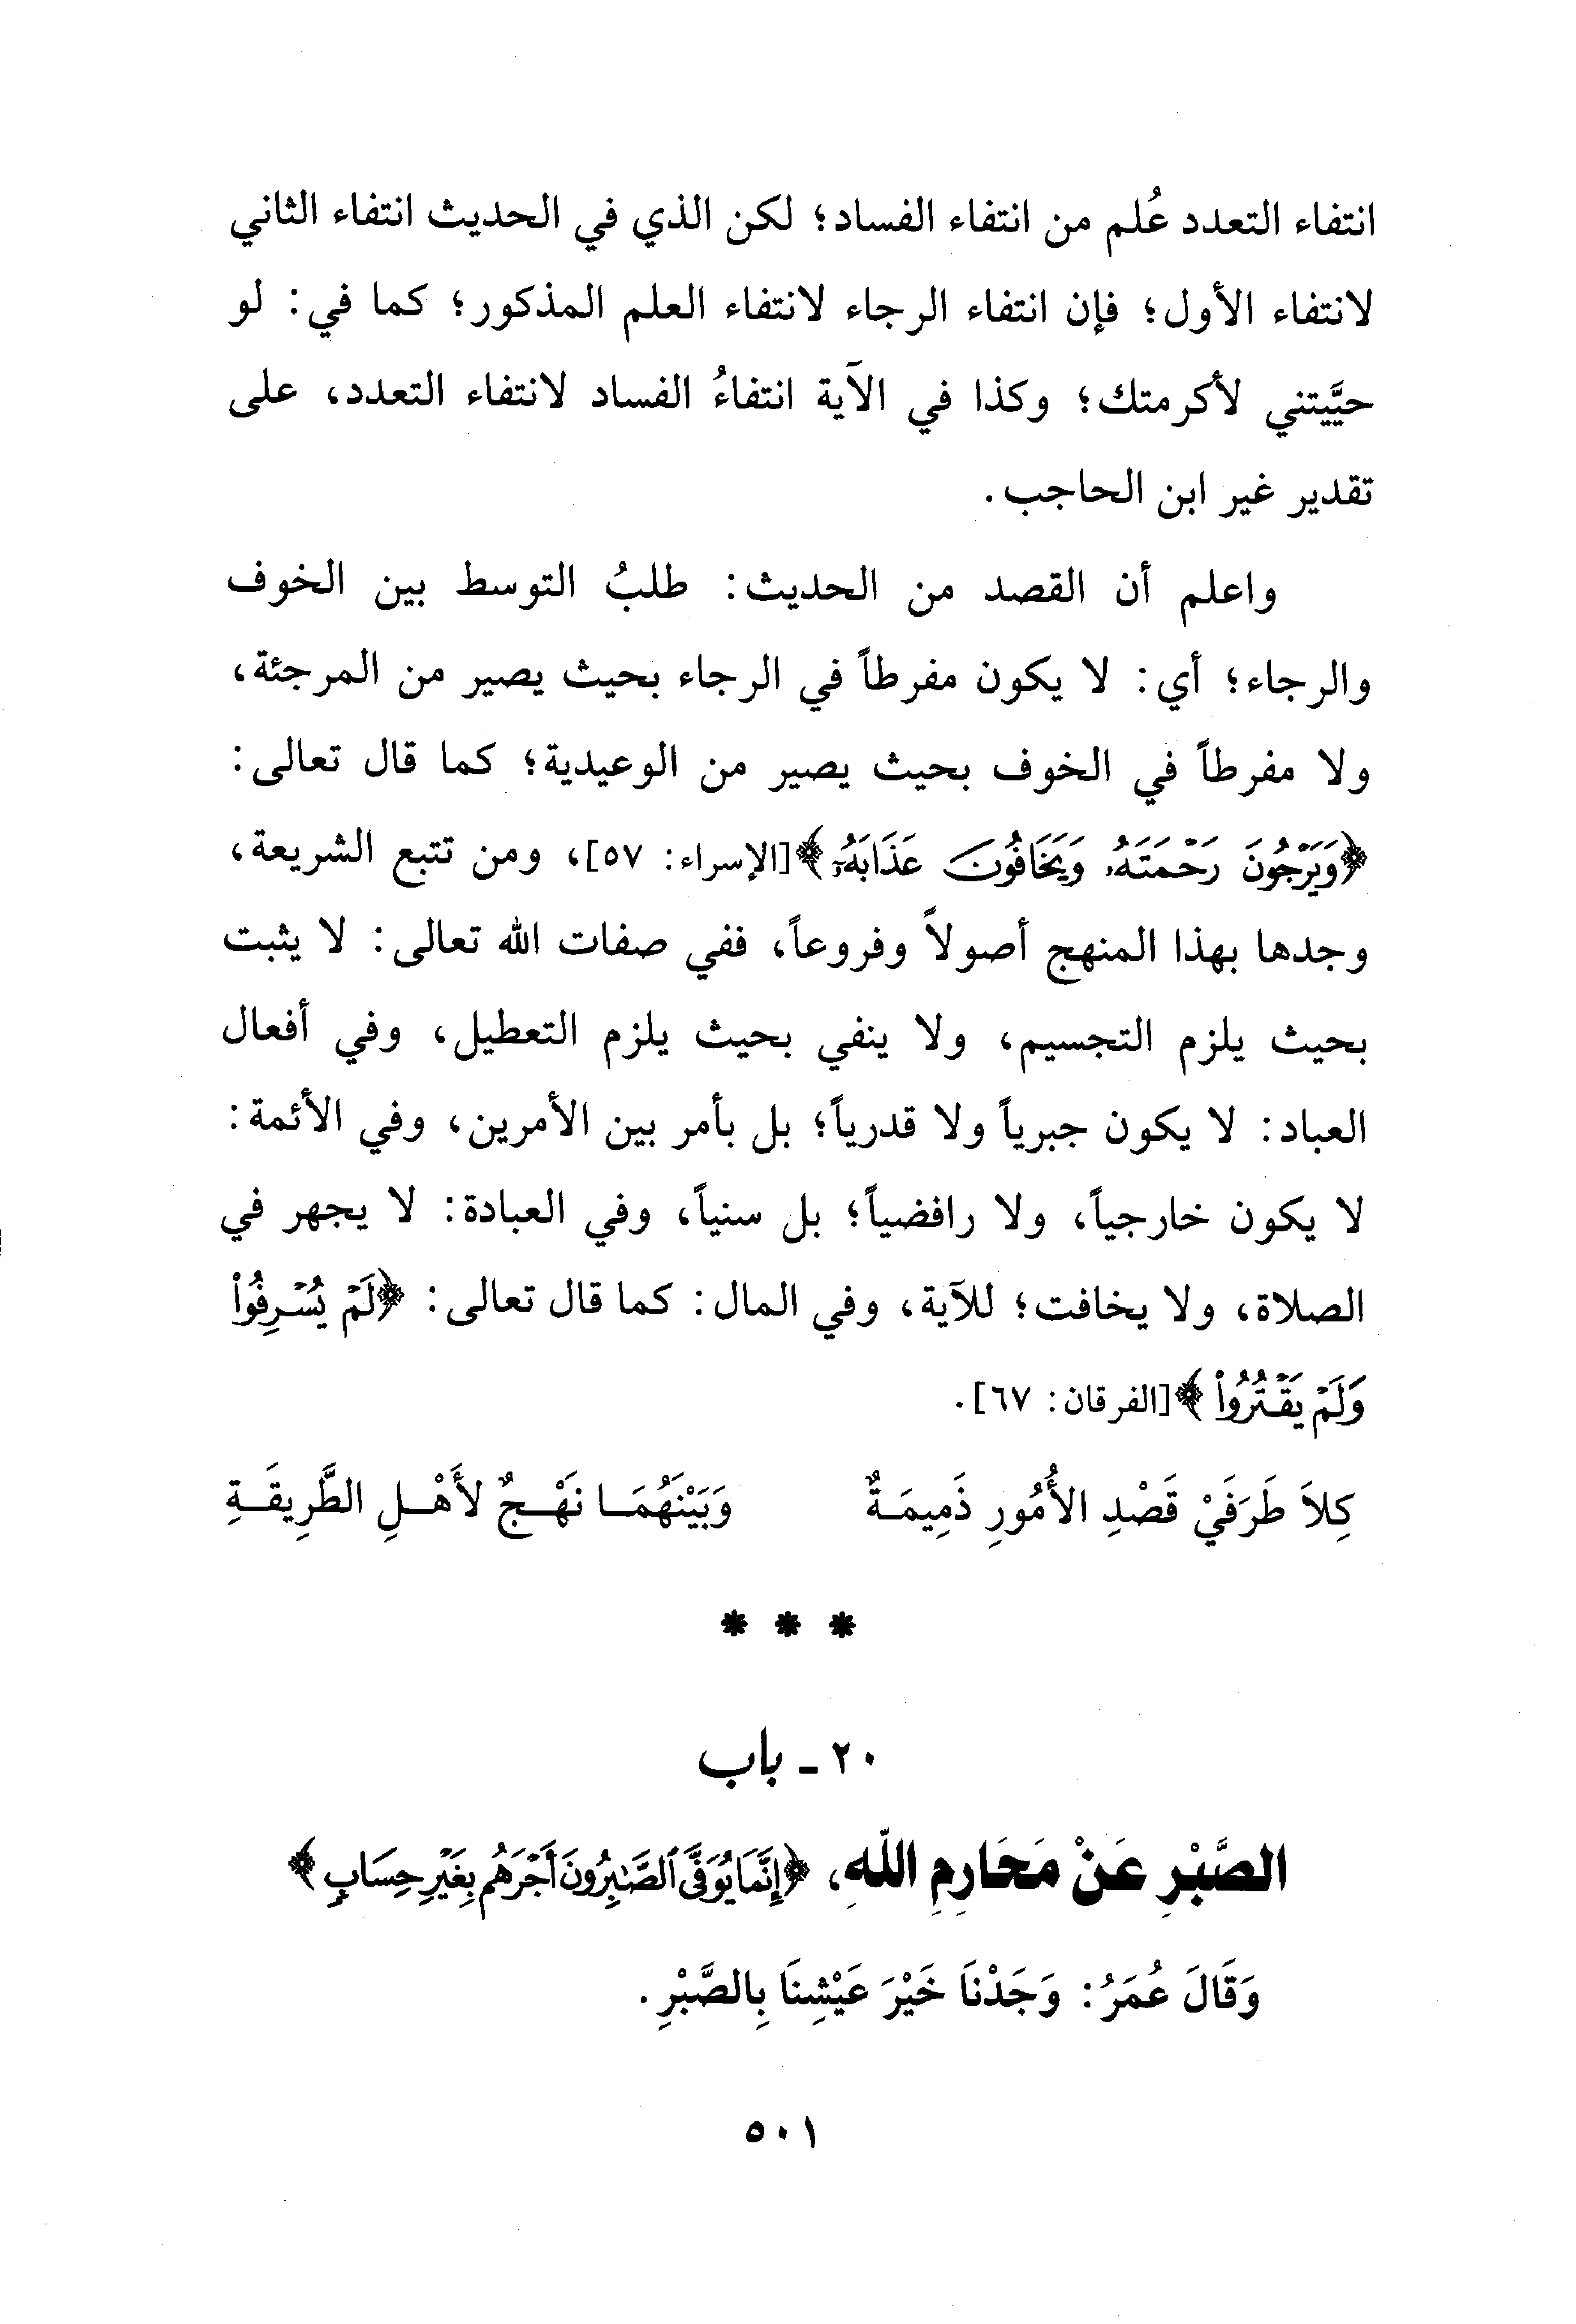 انتفاء التعدد عُلم من انتفاء الفساد؛ لكن الذي في الحديث انتفاء الثاني
لانتفاء الأول؛ فإن انتفاء الرجاء لانتفاء العلم المذكور؛ كما في: لو
حيَّيتني لأكرمتك؛ وكذا في الآية انتفاءُ الفساد لانتفاء التعدد، على
تقدير غير ابن الحاجب.
واعلم أن القصد من الحديث: طلبُ التوسط بين الخوف
والرجاء؛ أي: لا يكون مفرطاً في الرجاء بحيث يصير من المرجئة،
ولا مفرطاً في الخوف بحيث يصير من الوعيدية؛ كما قال تعالى:
﴿وَيَرْجُونَ رَحْمَتَهُۥ وَيَخَافُونَ عَذَابَهُۥٓ﴾[الإسراء: ٥٧]، ومن تتبع الشريعة،
وجدها بهذا المنهج أصولاً وفروعاً، ففي صفات الله تعالى: لا يثبت
بحيث يلزم التجسيم، ولا ينفي بحيث يلزم التعطيل، وفي أفعال
العباد: لا يكون جبرياً ولا قدرياً؛ بل بأمر بين الأمرين، وفي الأئمة:
لا يكون خارجياً، ولا رافضياً؛ بل سنياً، وفي العبادة: لا يجهر في
الصلاة، ولا يخافت؛ للآية، وفي المال: كما قال تعالى: ﴿لَمْ يُسْرِفُوا۟
وَلَمْ يَقْتُرُوا۟﴾[الفرقان: ٦٧].
كِلاَ طَرَفَيْ قَصْدِ الأُمُورِ ذَمِيمَةٌ وَبَيْنَهُمَا نَهْجٌ لأَهْلِ الطَّرِيقَةِ
* * *
٢٠ - باب
الصَّبْرِ عَنْ مَحَارِمِ اللَّهِ، ﴿إِنَّمَا يُوَفَّى ٱلصَّـٰبِرُونَ أَجْرَهُم بِغَيْرِ حِسَابٍ﴾
وَقَالَ عُمَرُ: وَجَدْنَا خَيْرَ عَيْشِنَا بِالصَّبْرِ.
٥٠١